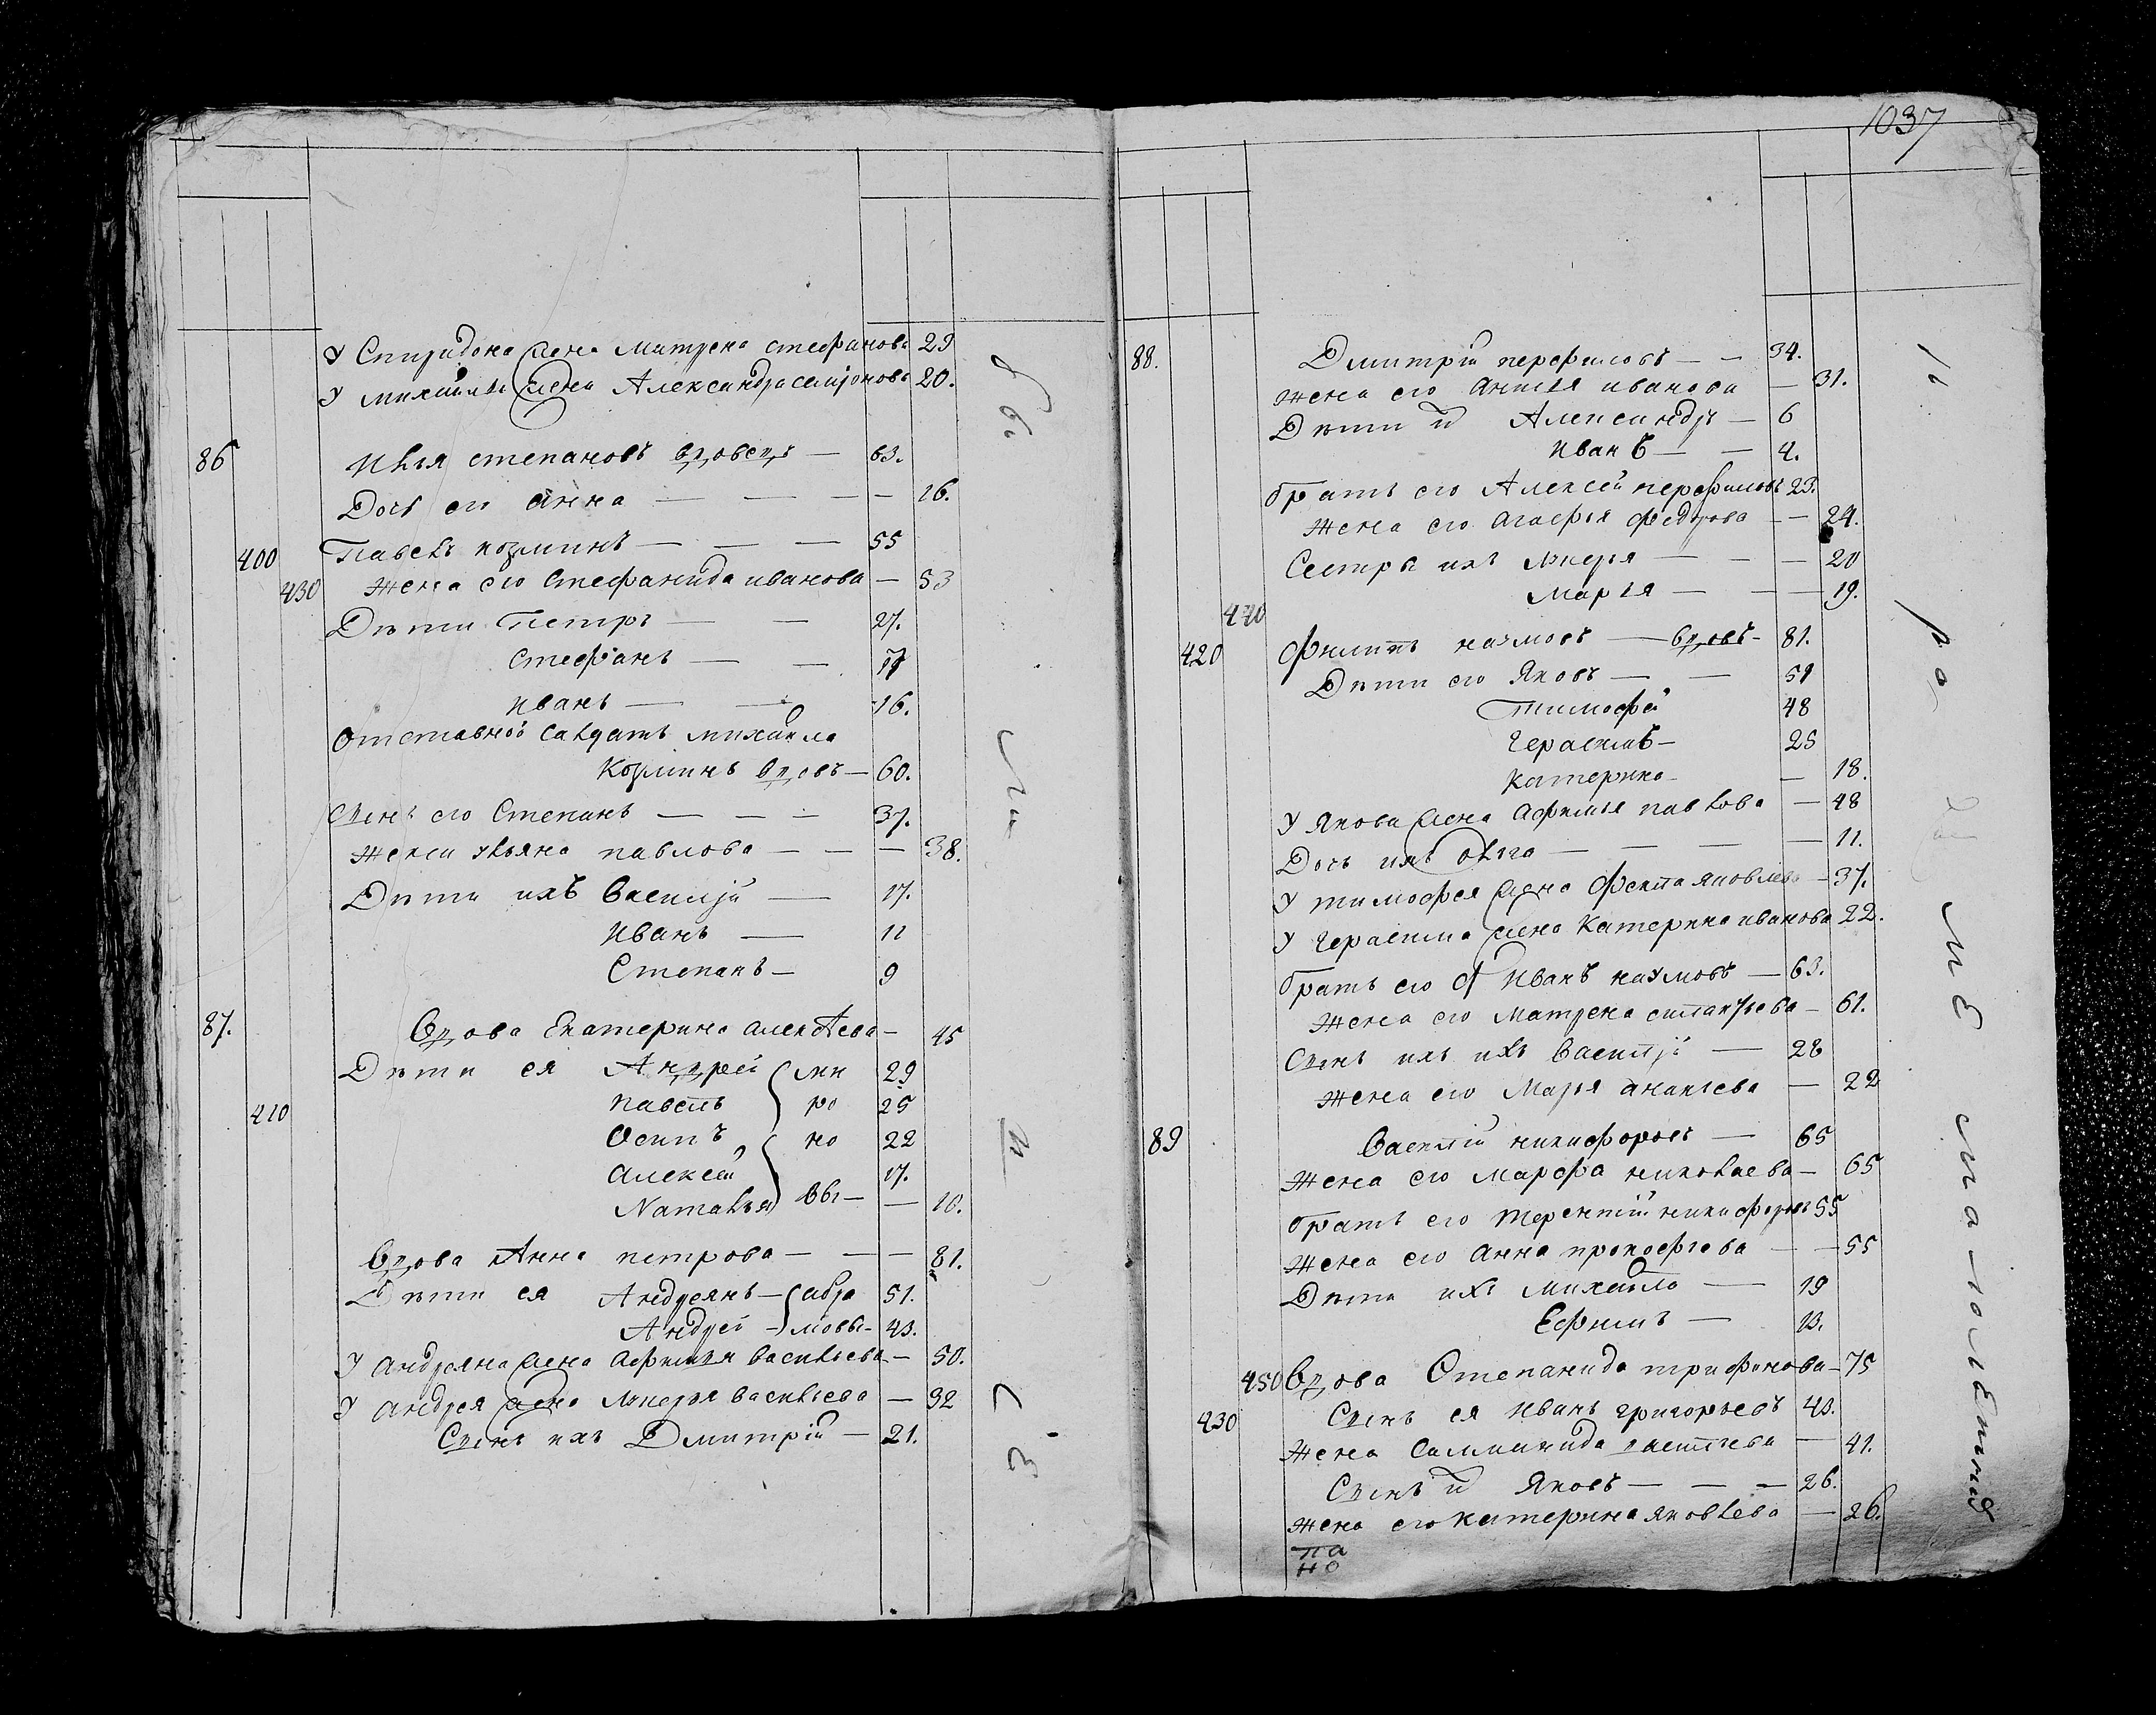 У Спиридона жена Матрена стефанова 29
У михаилы жена Александра семїонова 20.
86 Илья степановъ вдовецъ — 63.
Дочь его анна — — — — 16.
400 Павелъ козминъ — — — 55
430 Жена его Стефанида иванова — 53
Дѣти Петръ — — 27.
Стефанъ — — 17
иванъ — — 16.
Отставной салдатъ михаила
козминъ вдовъ — 60.
Сынъ его Степанъ — — — 37.
Жена ульяна павлова — — — 38.
Дѣти ихъ Василїй — 17.
Иванъ — 11
Степанъ — 9
87. Вдова Екатерина алексѣева — 45
Дѣти ея Андрей ми 29
410 павелъ ро 25
Осипъ но 22
алексей 17.
Наталья вы — — 10.
Вдова Анна петрова — — — 81.
Дѣти ея Андреянъ — абра 51.
Андрей — мовы — 43.
У андреяна жена афимья васильева — 50.
У андрея жена лукерья васильева — 32
Сынъ ихъ Дмитрій — 21.
1037
88. Дмитрій перфиловъ — — 34.
Жена его анисья иванова — 31.
Дѣти и Александръ — 6
иванъ — — 4.
братъ его Алексей перфиловъ 23.
Жена его агафья федорова — — 24.
Сестры ихъ лукерья — — — 20
марья — — — 19.
440
420 филипъ наумовъ — вдовъ — 81.
Дѣти его Яковъ — — 51
тимофей 48
герасимъ — 25
катерина — — 18.
У якова жена афимья павлова — 48
Дочь ихъ ольга — — — — 11.
У тимофея жена фекла яковлева — 37.
У герасима жена катерина иванова 22.
братъ его Иванъ наумовъ — 63.
Жена его матрена — 61.
Сынъ ихъ ихъ василїй — 28
Жена его Марья ананьева — 22
89 Василій никифоровъ — 65
Жена его марфа николаева — 65
братъ его терентій никифоровъ 55
Жена его анна прокофьева — — 55
Дѣти ихъ михайло — 19
Ефимъ — 13.
450 Вдова Степанида трифонова — 75
430 Сынъ ея иванъ григорьевъ 43.
Жена — 41.
Сынъ и Яковъ — — — 26.
Жена его катерина яковлева — 26.